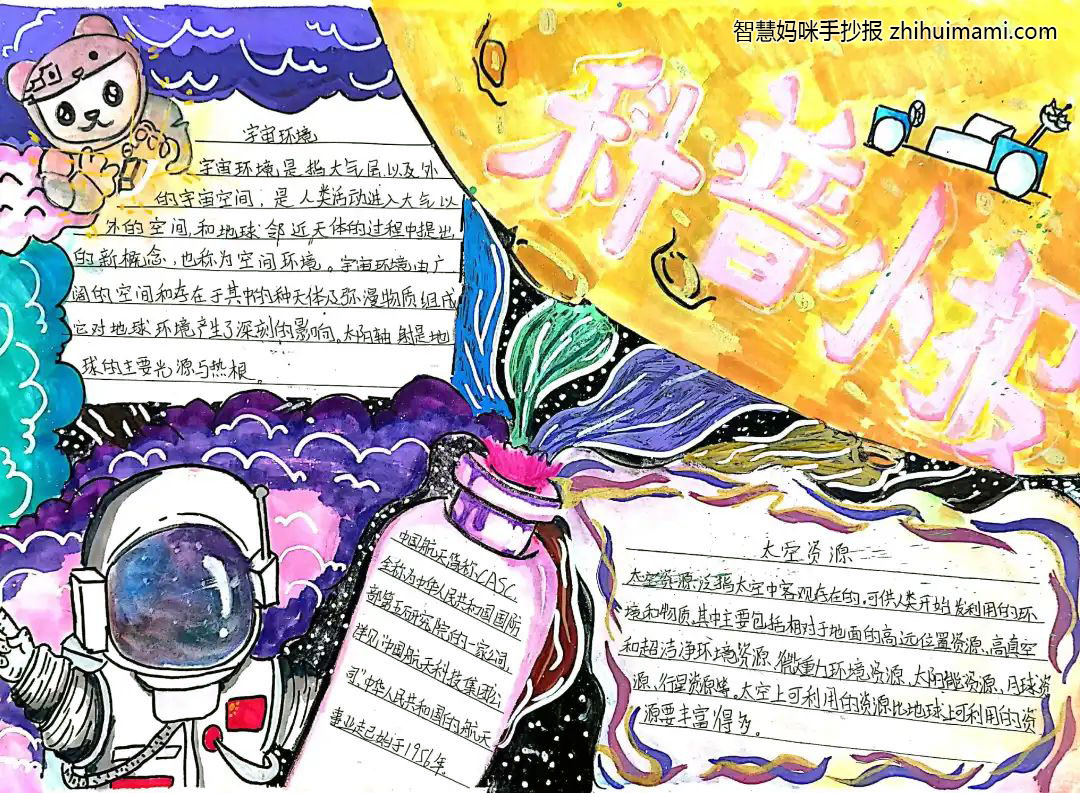 智慧妈咪手抄报 zhihuimami.com
科普小报
宇宙环境
宇宙环境是指大气层以及外
的宇宙空间，是人类活动进入大气以
外的空间和地球邻近天体的过程中提出
的新概念，也称为空间环境。宇宙环境由广
阔的空间和存在于其中的种天体及弥漫物质组成
它对地球环境产生了深刻的影响。太阳轴射是地
球的主要光源与热根。
中国航天简称CASC，
全称为中华人民共和国国防
部第五研究院的一家公司，
详见"中国航天科技集团公
司"中华人民共和国的航天
事业走已始于1956年。
太空资源
太空资源泛指太空中客观存在的，可供人类开始发利用的环
境和物质，其中主要包括相对于地面的高远位置资源、高真空
和超洁净环境资源、微重力环境资源、太阳能资源、月球资
源、行星资源等。太空上可利用的资源比地球上可利用的资
源要丰富得多。